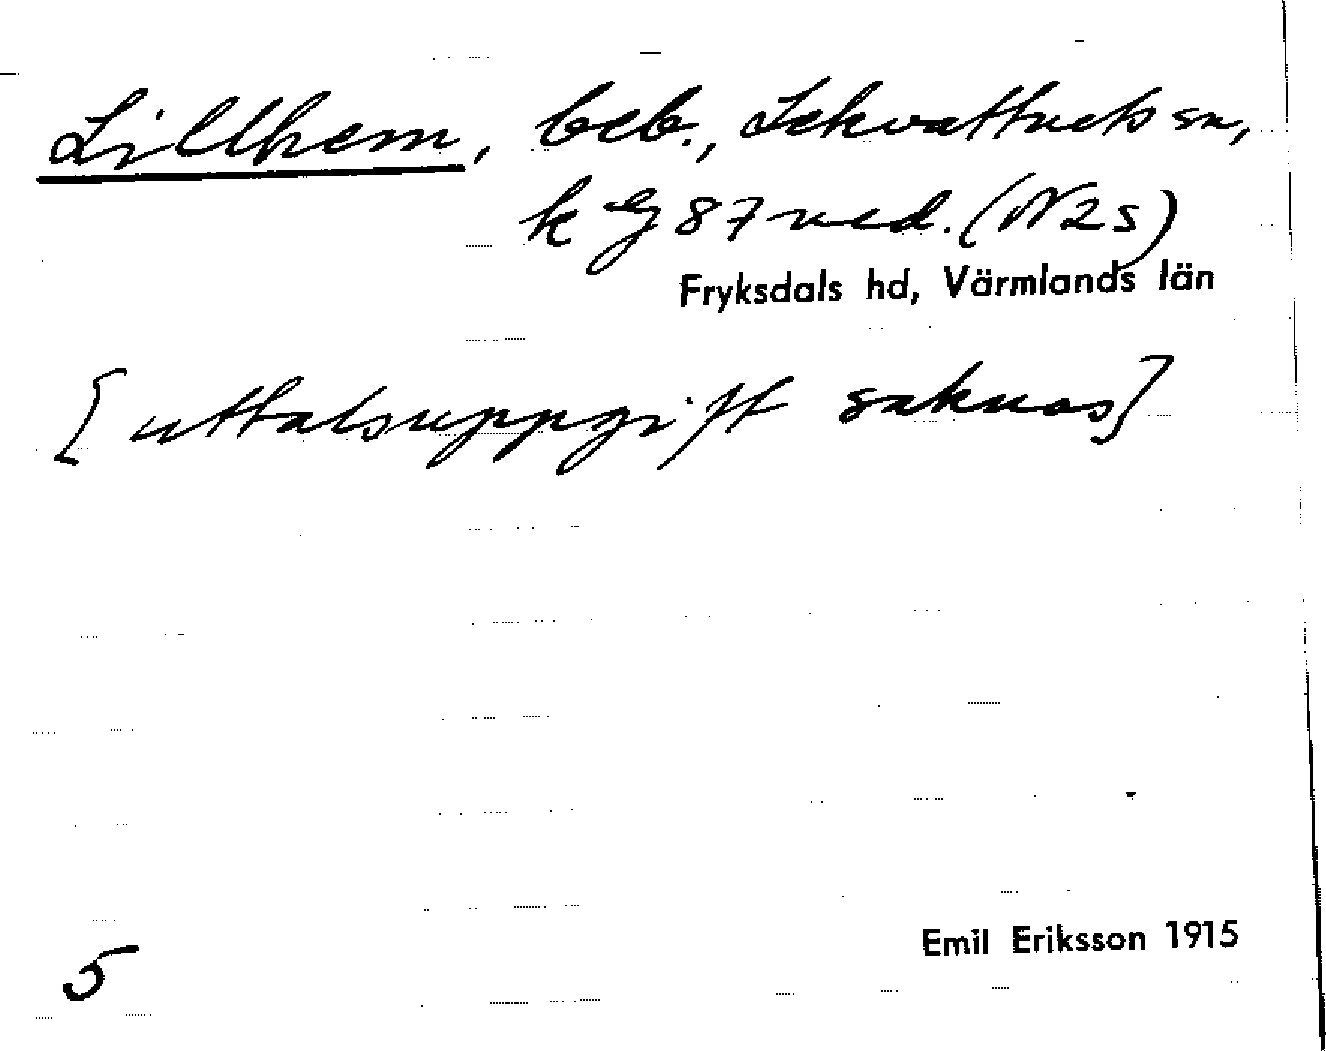 Lillhem, beb., Lekvattnets sn,
k Eg 87 ned. (N2S)
Fryksdals hd, Värmlands län
[uttalsuppgift saknas]
Emil Eriksson 1915
5